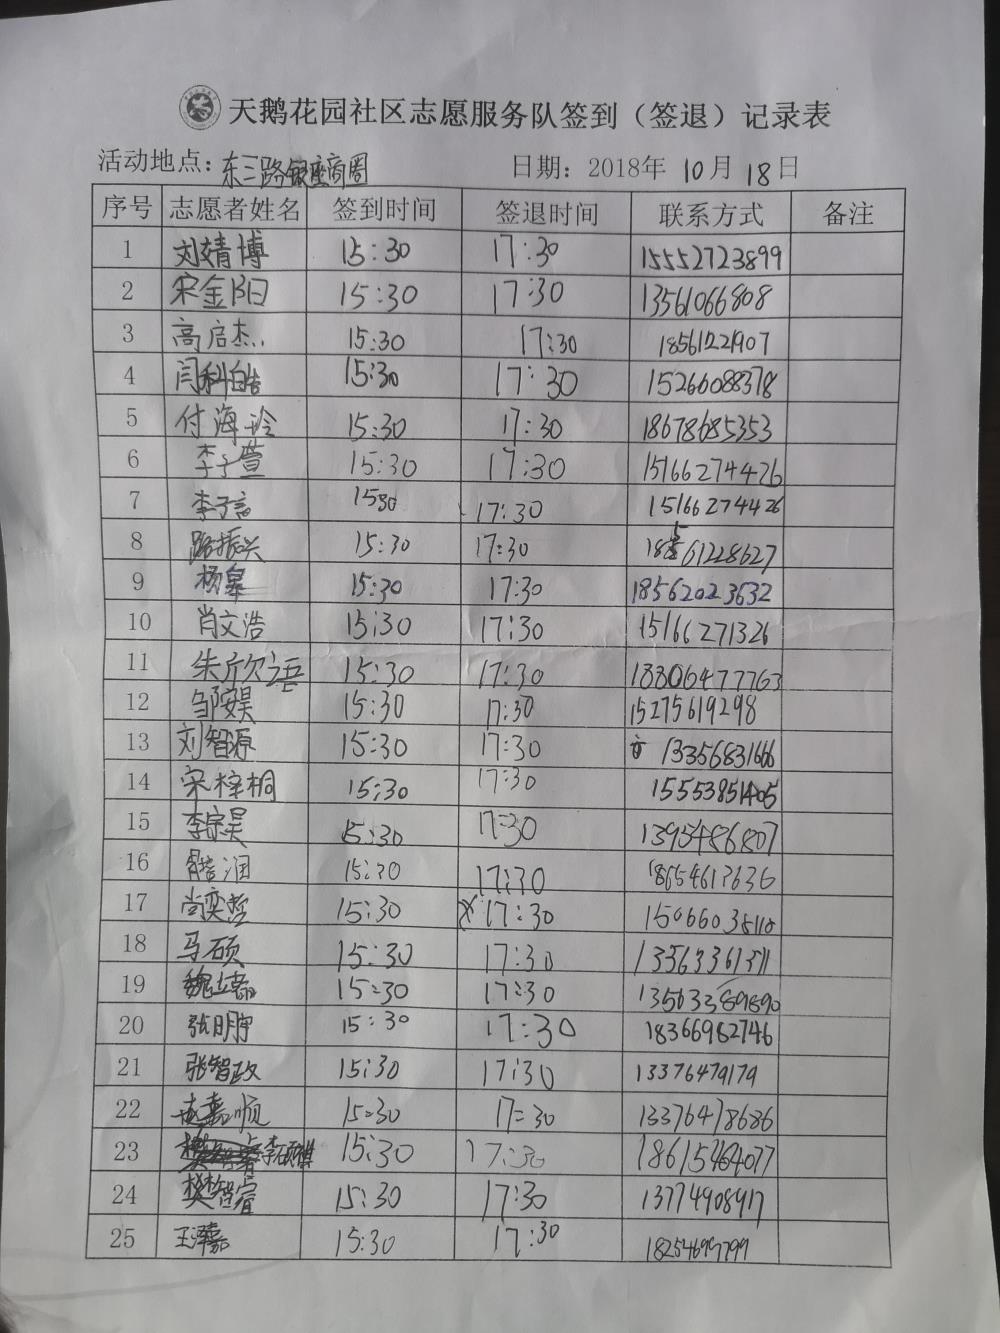 天鹅花园社区志愿服务队签到（签退）记录表
活动地点：东三路银座商圈 日期：2018年 10月 18日
序号 志愿者姓名 签到时间 签退时间 联系方式 备注
1 刘婧博 15:30 17:30 15552723899
2 宋金阳 15:30 17:30 13561066808
3 高启杰 15:30 17:30 18561221907
4 闫科皓 15:30 17:30 15266088378
5 付海玲 15:30 17:30 18678685353
6 李子萱 15:30 17:30 15166274426
7 李子言 1530 17:30 15166274426
8 路振兴 15:30 17:30 18561228627
9 杨皋 15:30 17:30 18562023632
10 肖文浩 15:30 17:30 15166271326
11 朱欣语 15:30 17:30 18306477763
12 邹安昊 15:30 17:30 15275619298
13 刘智源 15:30 17:30 13356831666
14 宋梓桐 15:30 17:30 15553851405
15 李宗昊 15:30 17:30 1395486807
16 润 15:30 17:30 18654613636
17 尚奕哲 15:30 17:30 15066035110
18 马硕 15:30 17:30
19 魏 15:30 17:30 13563389890
20 张明宇 15:30 17:30 18366982746
21 张智政 15:30 17:30 13376479179
22 赵嘉顺 15:30 17:30 13376478686
23 李硕祺 15:30 17:30
24 樊智睿 15:30 17:30 13774908917
25 王泽嘉 15:30 17:30 18254699799